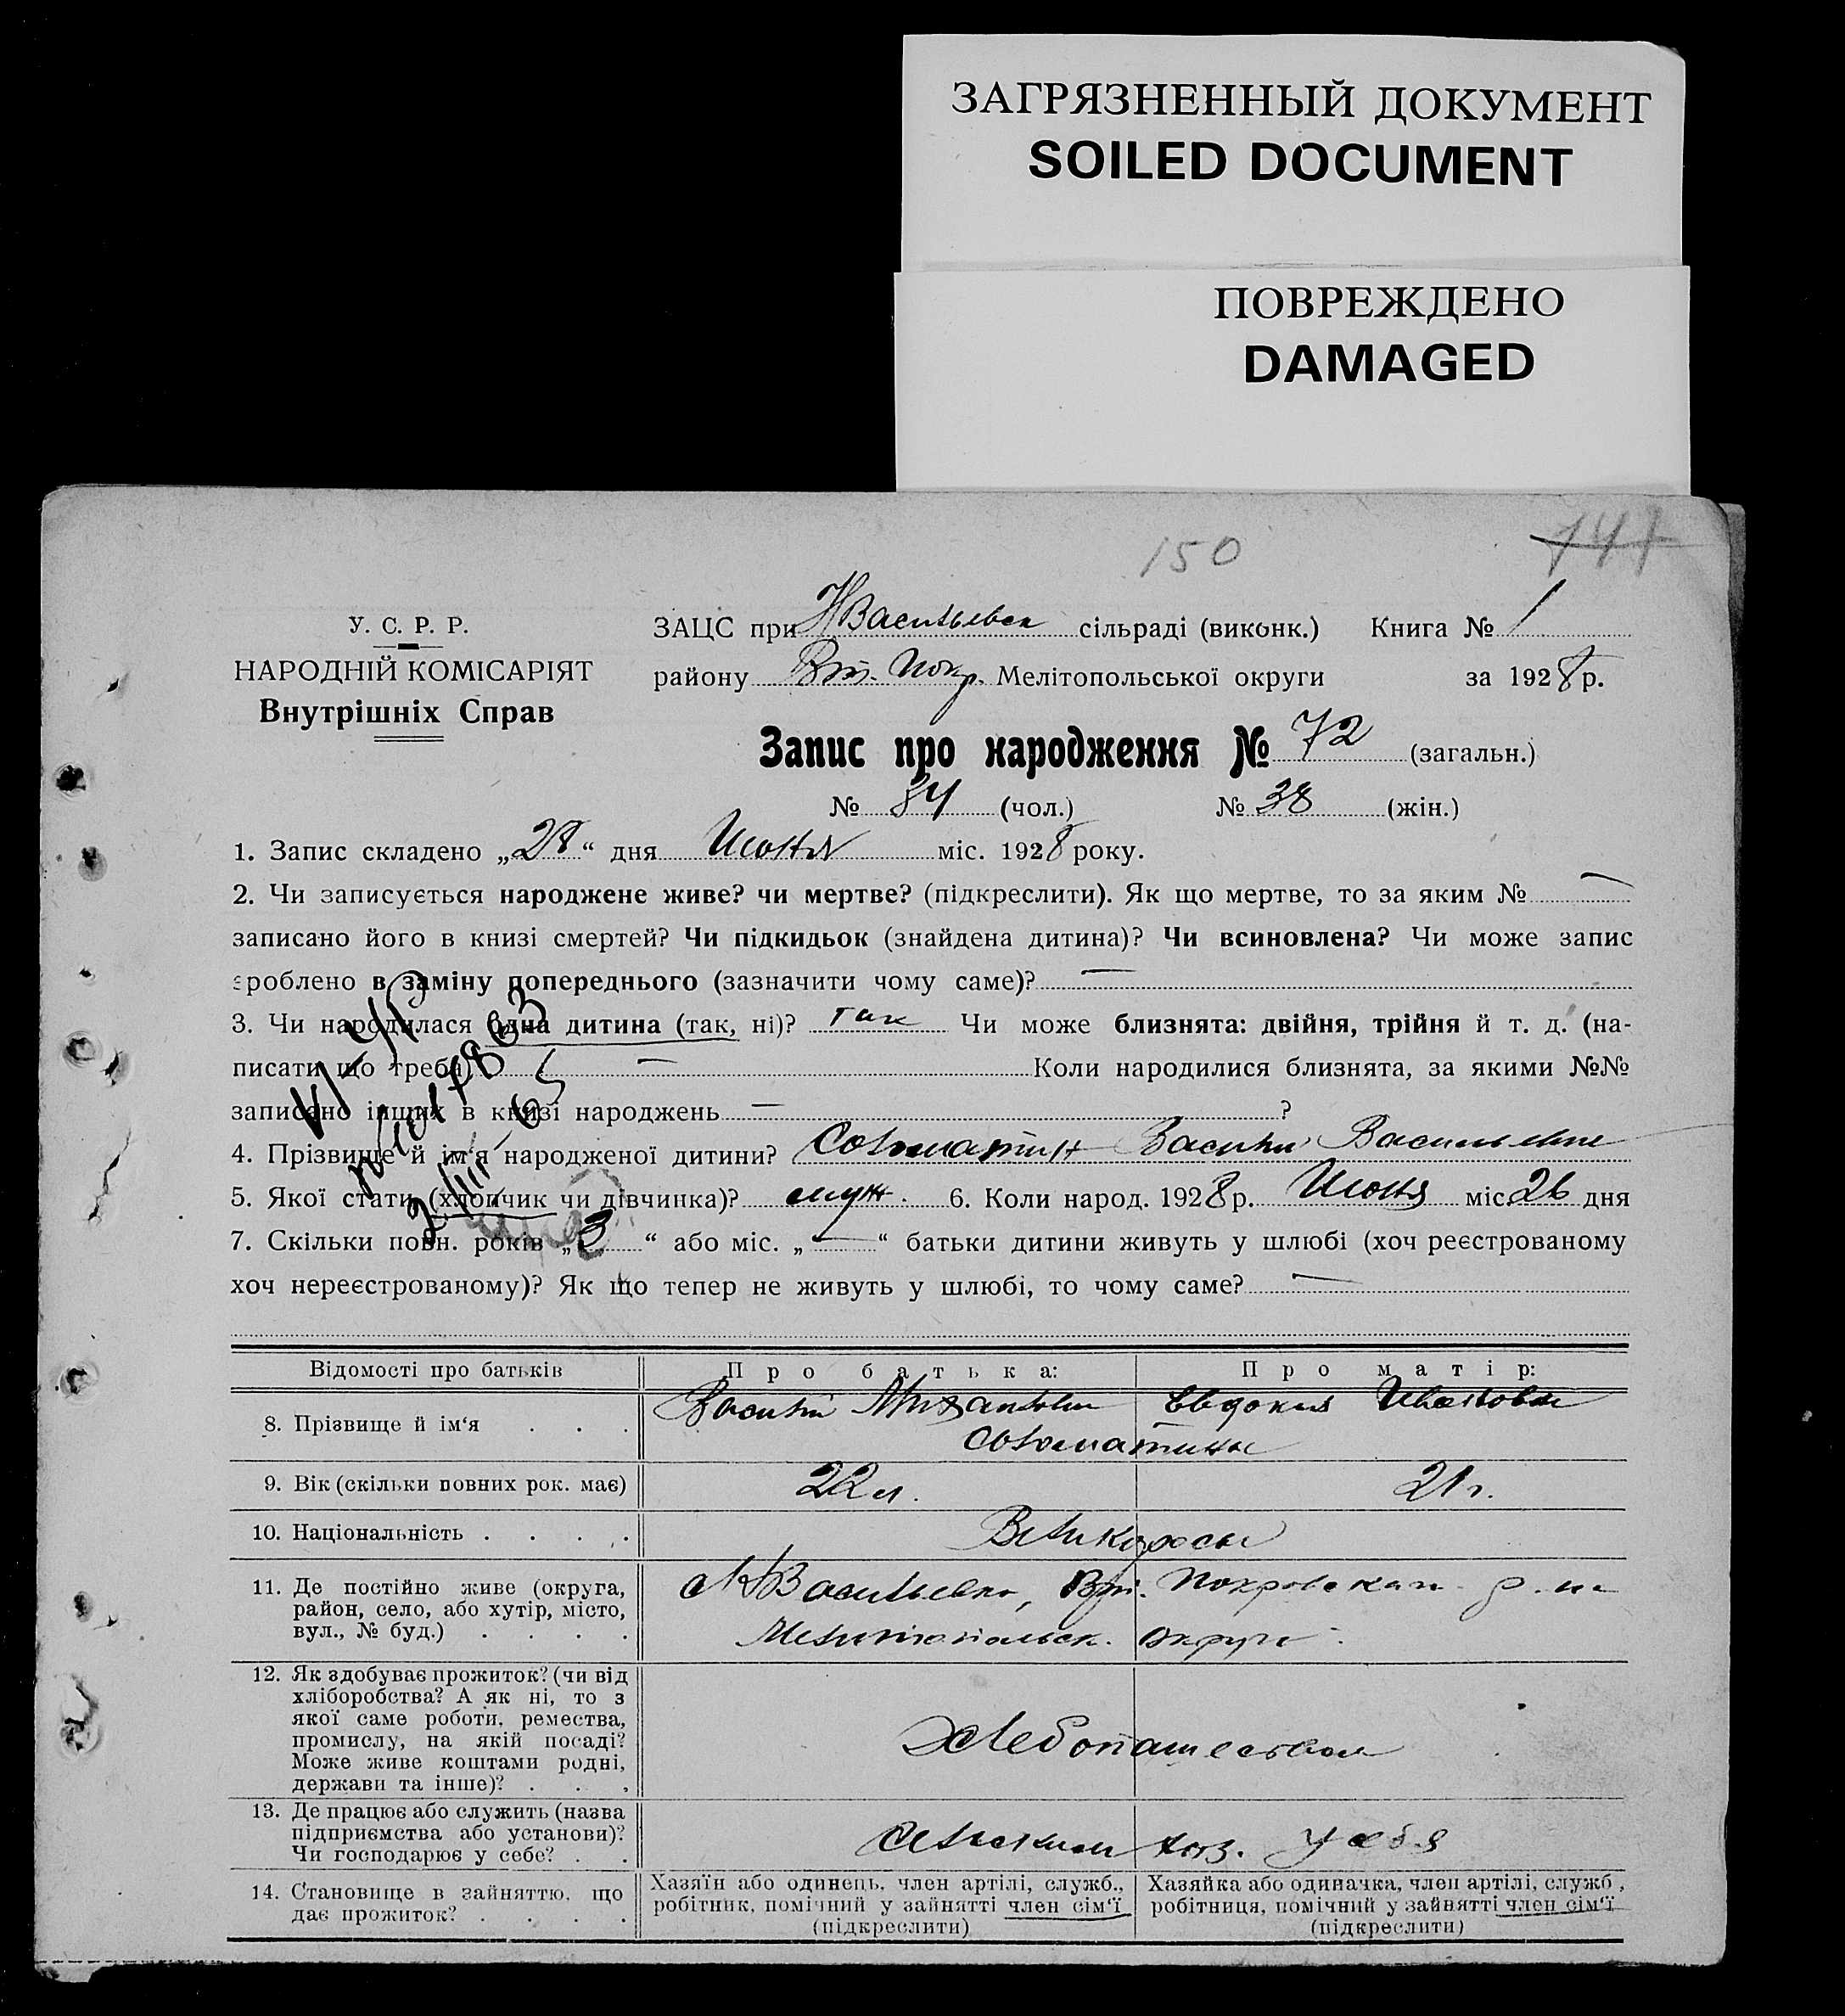 ЗАГРЯЗНЕННЫЙ ДОКУМЕНТ
SOILED DOCUMENT
ПОВРЕЖДЕНО
DAMAGED
150 141
У. С. Р. Р.
НАРОДНІЙ КОМІСАРІЯТ
Внутрішніх Справ
ЗАЦС при НВасильевск сільраді (виконк.) Книга № 1
району Вт. Покр. Мелітопольської округи за 1928 р.
Запис про народження № 72 (загальн.)
№ 34 (чол.) № 38 (жін.)
1. Запис складено „28“ дня Июня міс. 1928 року.
2. Чи записується народжене живе? чи мертве? (підкреслити). Як що мертве, то за яким № —
записано його в книзі смертей? Чи підкидьок (знайдена дитина)? Чи всиновлена? Чи може запис
зроблено в заміну попереднього (зазначити чому саме)? —
3. Чи народилася одна дитина (так, ні)? так Чи може близнята: двійня, трійня й т. д. (на-
писати що треба) — Коли народилися близнята, за якими №№
записано інших в книзі народжень — ?
4. Прізвище й ім‘я народженої дитини? Соломатин Василий Васильевич
5. Якої стати (хлопчик чи дівчинка)? муж. 6. Коли народ. 1928 р. Июня міс. 26 дня
7. Скільки повн. років „3“ або міс. „—“ батьки дитини живуть у шлюбі (хоч реєстрованому
хоч нереєстрованому)? Як що тепер не живуть у шлюбі, то чому саме? —
Відомості про батьків Про батька: Про матір:
8. Прізвище й ім‘я . . . Василий Михайлович Евдокия Ивановна
Соломатины
9. Вік (скільки повних рок. має) 22 л. 21 г.
10. Національність . . . . Великоросы
11. Де постійно живе (округа, район, село, або хутір, місто, вул., № буд.) . . . . НВасильевка, Вт. Покровскаго р-на
Мелитопольск. округи
12. Як здобуває прожиток? (чи від
хліборобства? А як ні, то з
якої саме роботи, ремества,
промислу, на якій посаді?
Може живе коштами родні,
держави та інше)? . . . Хлебопашеством
13. Де працює або служить (назва
підприємства або установи)?
Чи господарює у себе? . . Сельским хоз. у себя
14. Становище в зайняттю, що
дає прожиток? . . . .
Хазяїн або одинець, член артілі, служб.,
робітник, помічний у зайнятті член сім‘ї
(підкреслити)
Хазяйка або одиначка, член артілі, служб.,
робітниця, помічний у зайнятті член сім‘ї
(підкреслити)